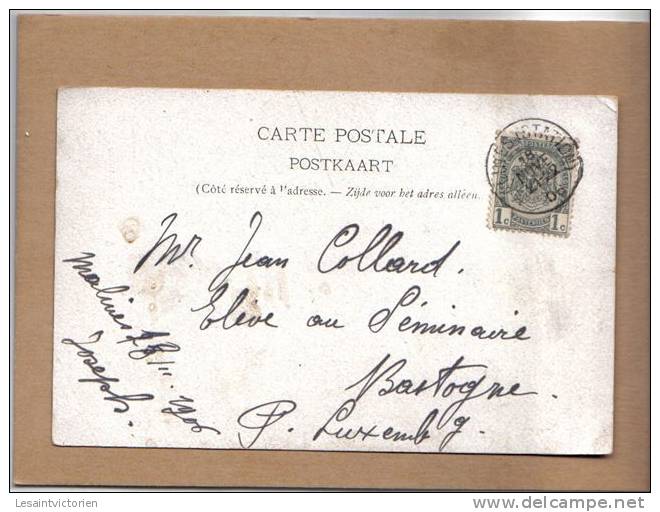 CARTE POSTALE
POSTKAART
(Côté réservé à l'adresse. — Zijde voor het adres alléén.
1c 1c
Mr. Jean Collard.
Elève au Séminaire
Bastogne.
P. Luxembg.
Malines 18/II. 1906
Joseph.
Lesaintvictorien
delcampe.net